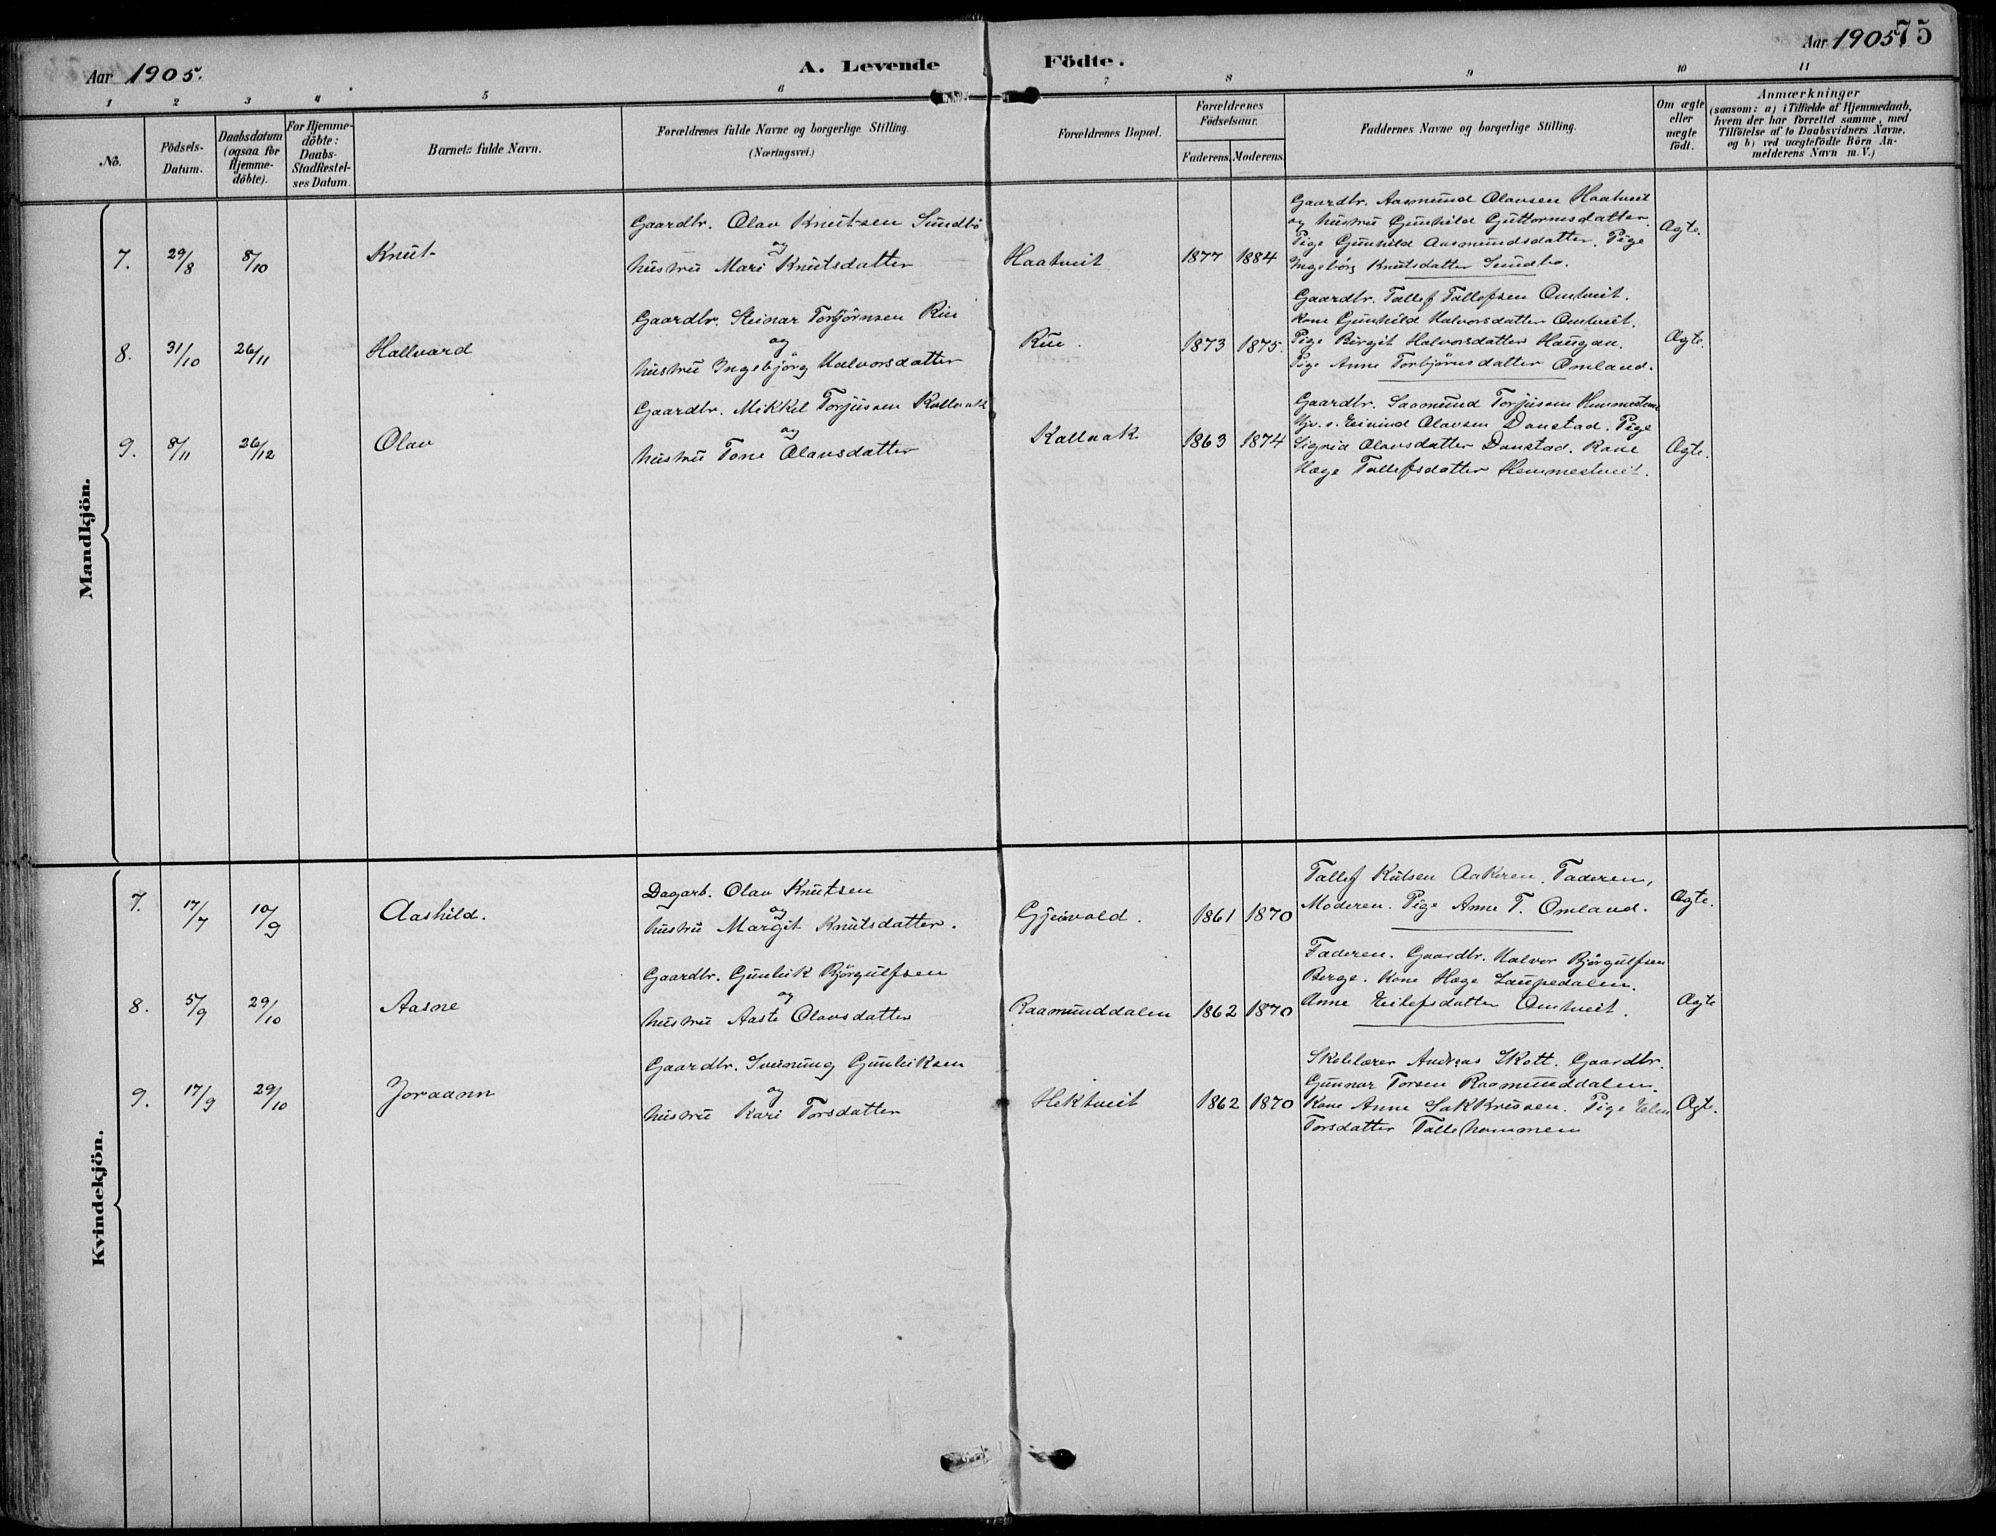 Aar 1905.
A. Levende Födte.
Aar 1905.
75
1 2 3 4 5 6 7 8 9 10 11
No.
Födsels-
Datum.
Daabsdatum
(ogsaa for
Hjemme-
döbte).
For Hjemme-
döbte:
Daabs-
Stadfæstel-
ses Datum.
Barnets fulde Navn.
Forældrenes fulde Navne og borgerlige Stilling.
(Næringsvei.)
Forældrenes Bopæl.
Forældrenes
Födselsaar.
Faderens. Moderens.
Faddernes Navne og borgerlige Stilling.
Om ægte
eller
uægte
födt.
Anmærkninger
(saasom: a) i Tilfælde af Hjemmedaab,
hvem der har forrettet samme, med
Tilföielse af to Daabsvidners Navne,
og b) ved uægtefödte Börn An-
melderens Navn m. V.)
Mandkjön.
7. 29/8 8/10 Knut
Gaardbr. Olav Knutsen Sundbö
og
hustru Mari Knutsdatter
Haatveit 1877 1884
Gaardbr. Aasmund Olavsen Haatveit
og hustru Gunhild Guttormsdatter.
Pige Gunhild Aasmundsdatter. Pige
Ingebörg Knutsdatter Sundbo.
Ægte.
8. 31/10 26/11 Hallvard
Gaardbr. Steinar Torbjörnsen Rui
og
hustru Ingebjörg Halvorsdatter
Rui. 1873 1875.
Gaardbr. Tallef Tallefsen Omtveit.
Kone Gunhild Halvorsdatter Omtveit.
Pige Birgit Halvorsdatter Haugan.
Pige Anne Torbjörnsdatter Omland.
Ægte.
9. 8/11 26/12 Olav
Gaardbr. Mikkel Torjussen Kallaak
og
hustru Tone Olavsdatter
Kallaak 1863 1874
Gaardbr. Saamund Torjussen
Eivind Olavsen Danstad. Pige
Sigrid Olavsdatter Danstad. Kone
Hæge Tallefsdatter Hemmestveit.
Ægte.
Kvindekjön.
7. 17/7 10/9 Aashild.
Dagarb. Olav Knutsen
og
hustru Margit Knutsdatter.
Gjeivold. 1861 1870
Tallef Aakeren. Faderen,
Moderen. Pige Anne T. Omland.
Ægte.
8. 5/9 29/10 Aasne
Gaardbr. Gunleik Björgulfsen
og
hustru Aaste Olavsdatter
Raamunddalen 1862 1870
Faderen. Gaardbr. Halvor Björgulfsen
Berge. Kone Hæge Laupedalen.
Anne Eilefsdatter Omtveit.
Ægte
9. 17/9 29/10 Joraann
Gaardbr. Sveinung Gunleiksen
og
hustru Kari Torsdatter
Hektveit 1862 1870
Skolelærer Andreas Skott. Gaardbr.
Gunnar Torsen Raamunddalen.
Kone Anne Sakkrissen. Pige Elen
Torsdatter Tallehommen
Ægte.